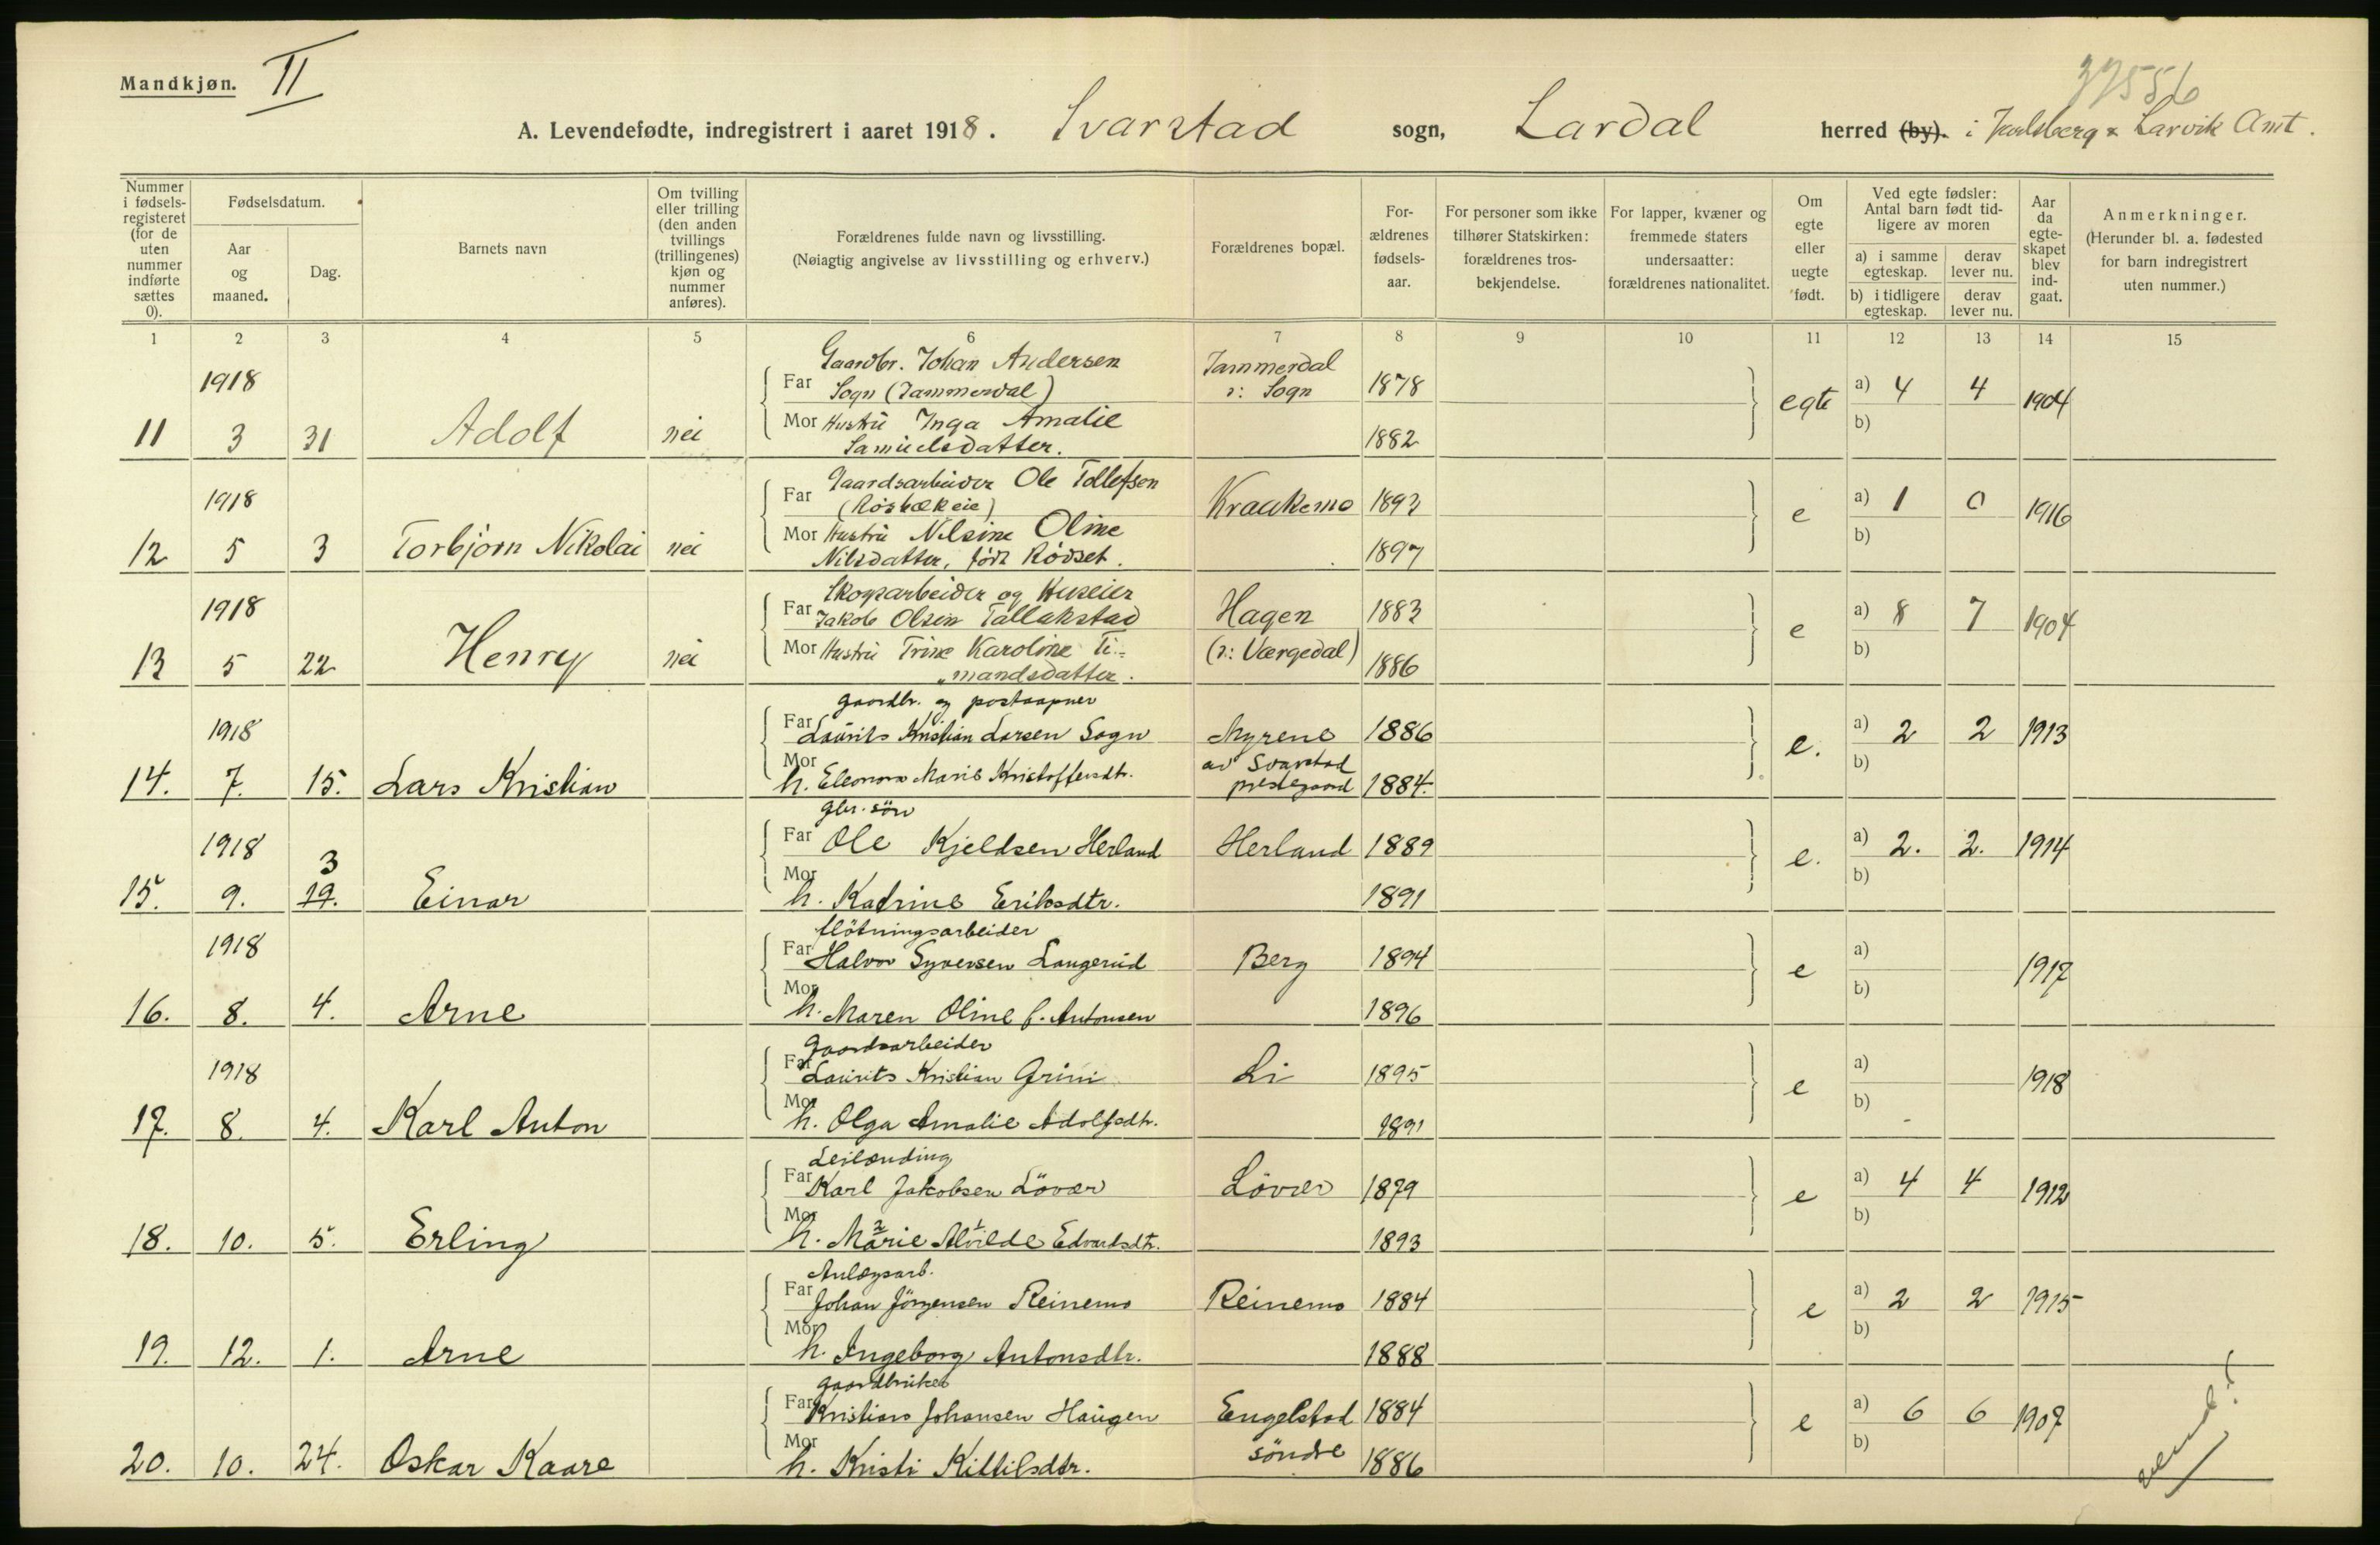 Mandkjøn. II
37556
A. Levendefødte, indregistrert i aaret 1918. Svarstad sogn, Lardal herred (by). i Jarlsberg & Larvik Amt.
Nummer i fødsels-registeret (for de uten nummer indførte sættes 0).
Fødselsdatum.
Aar og maaned.
Dag.
Barnets navn
Om tvilling eller trilling (den anden tvillings (trillingenes) kjøn og nummer anføres).
Forældrenes fulde navn og livsstilling.
(Nøiagtig angivelse av livsstilling og erhverv.)
Forældrenes bopæl.
For-ældrenes fødsels-aar.
For personer som ikke tilhører Statskirken: forældrenes tros-bekjendelse.
For lapper, kvæner og fremmede staters undersaatter: forældrenes nationalitet.
Om egte eller uegte født.
Ved egte fødsler: Antal barn født tid-ligere av moren
a) i samme egteskap.
derav lever nu.
b) i tidligere egteskap.
derav lever nu.
Aar da egte-skapet blev ind-gaat.
Anmerkninger.
(Herunder bl. a. fødested for barn indregistrert uten nummer.)
1 2 3 4 5 6 7 8 9 10 11 12 13 14 15
Gaardbr. Johan Andersen
1918 Far Sogn (Jammerdal) Jammerdal ɔ: Sogn 1878 egte a) 4 4 1904
11 3 31 Adolf nei Mor Hustru Inga Amalie 1882 b)
Samuelsdatter.
Gaardsarbeider Ole Tollefsen
1918 Far Kraakemo 1893 e a) 1 0 1916
12 5 3 Torbjørn Nikolai nei Mor Hustru Nilsine Oline 1897 b)
Nilsdatter, født Rødset.
Skogsarbeider og Huseier
1918 Far Jakob Olsen Tallakstad Hagen 1883 e a) 8 7 1904
13 5 22 Henry nei Mor Hustru Trine Karoline Ti- (ɔ: Værgedal) 1886 b)
mandsdatter.
gaardbr. og postaapner
1918 Far Laurits Kristian Larsen Sogn Myrene 1886 e. a) 2 2 1913
av Svarstad
14. 7. 15. Lars Kristian Mor h. Eleonora Marie Kristoffersdtr. prestegaard 1884. b)
gbr. søn
1918 3 Far Ole Kjeldsen Herland Herland 1889 e. a) 2. 2. 1914
15. 9. 19. Einar Mor h. Katrine Eriksdtr. 1891 b)
fløtningsarbeider
1918 Far Halvor Syversen Langerud Berg 1894 e a) 1917
16. 8. 4. Arne Mor h. Maren Oline f. Antonsen 1896 b)
Gaardsarbeider
1918 Far Laurits Kristian Grini Li 1895 e a) 1918
17. 8. 4. Karl Anton Mor h. Olga Amalie Adolfsdtr. 1891 b)
Leilænding
Far Karl Jakobsen Løvær Løvær 1879 e a) 4 4 1912
2 1
18. 10. 5. Erling Mor h. Marie Alvilde Edvardsdtr. 1893 b)
Anlægsarb.
Far Johan Jörgensen Reinemo Reinemo 1884 e a) 2 2 1915
19. 12. 1. Arne Mor h. Ingeborg Antonsdtr. 1888 b)
gaardbruker
Far Kristians Johansen Haugen Engelstad 1884 e a) 6 6 1907
20. 10. 24. Oskar Kaare Mor h. Kristi Kittilsdtr. söndre 1886 b)